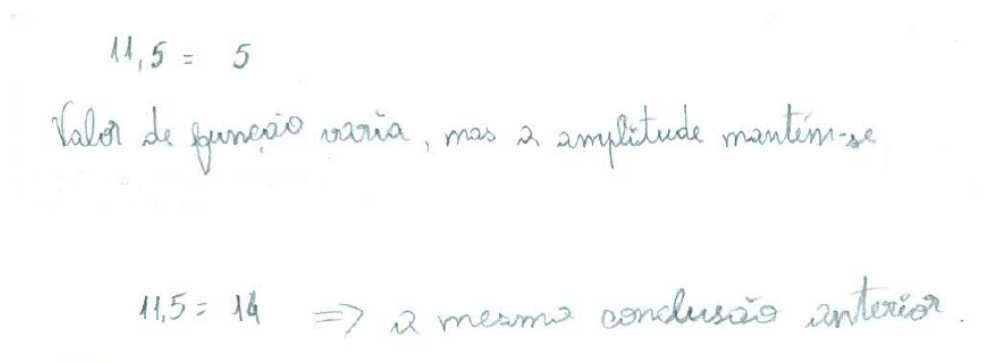 11,5 = 5
Valor de função varia, mas a amplitude mantém-se
11,5 = 14 => a mesma conclusão anterior.